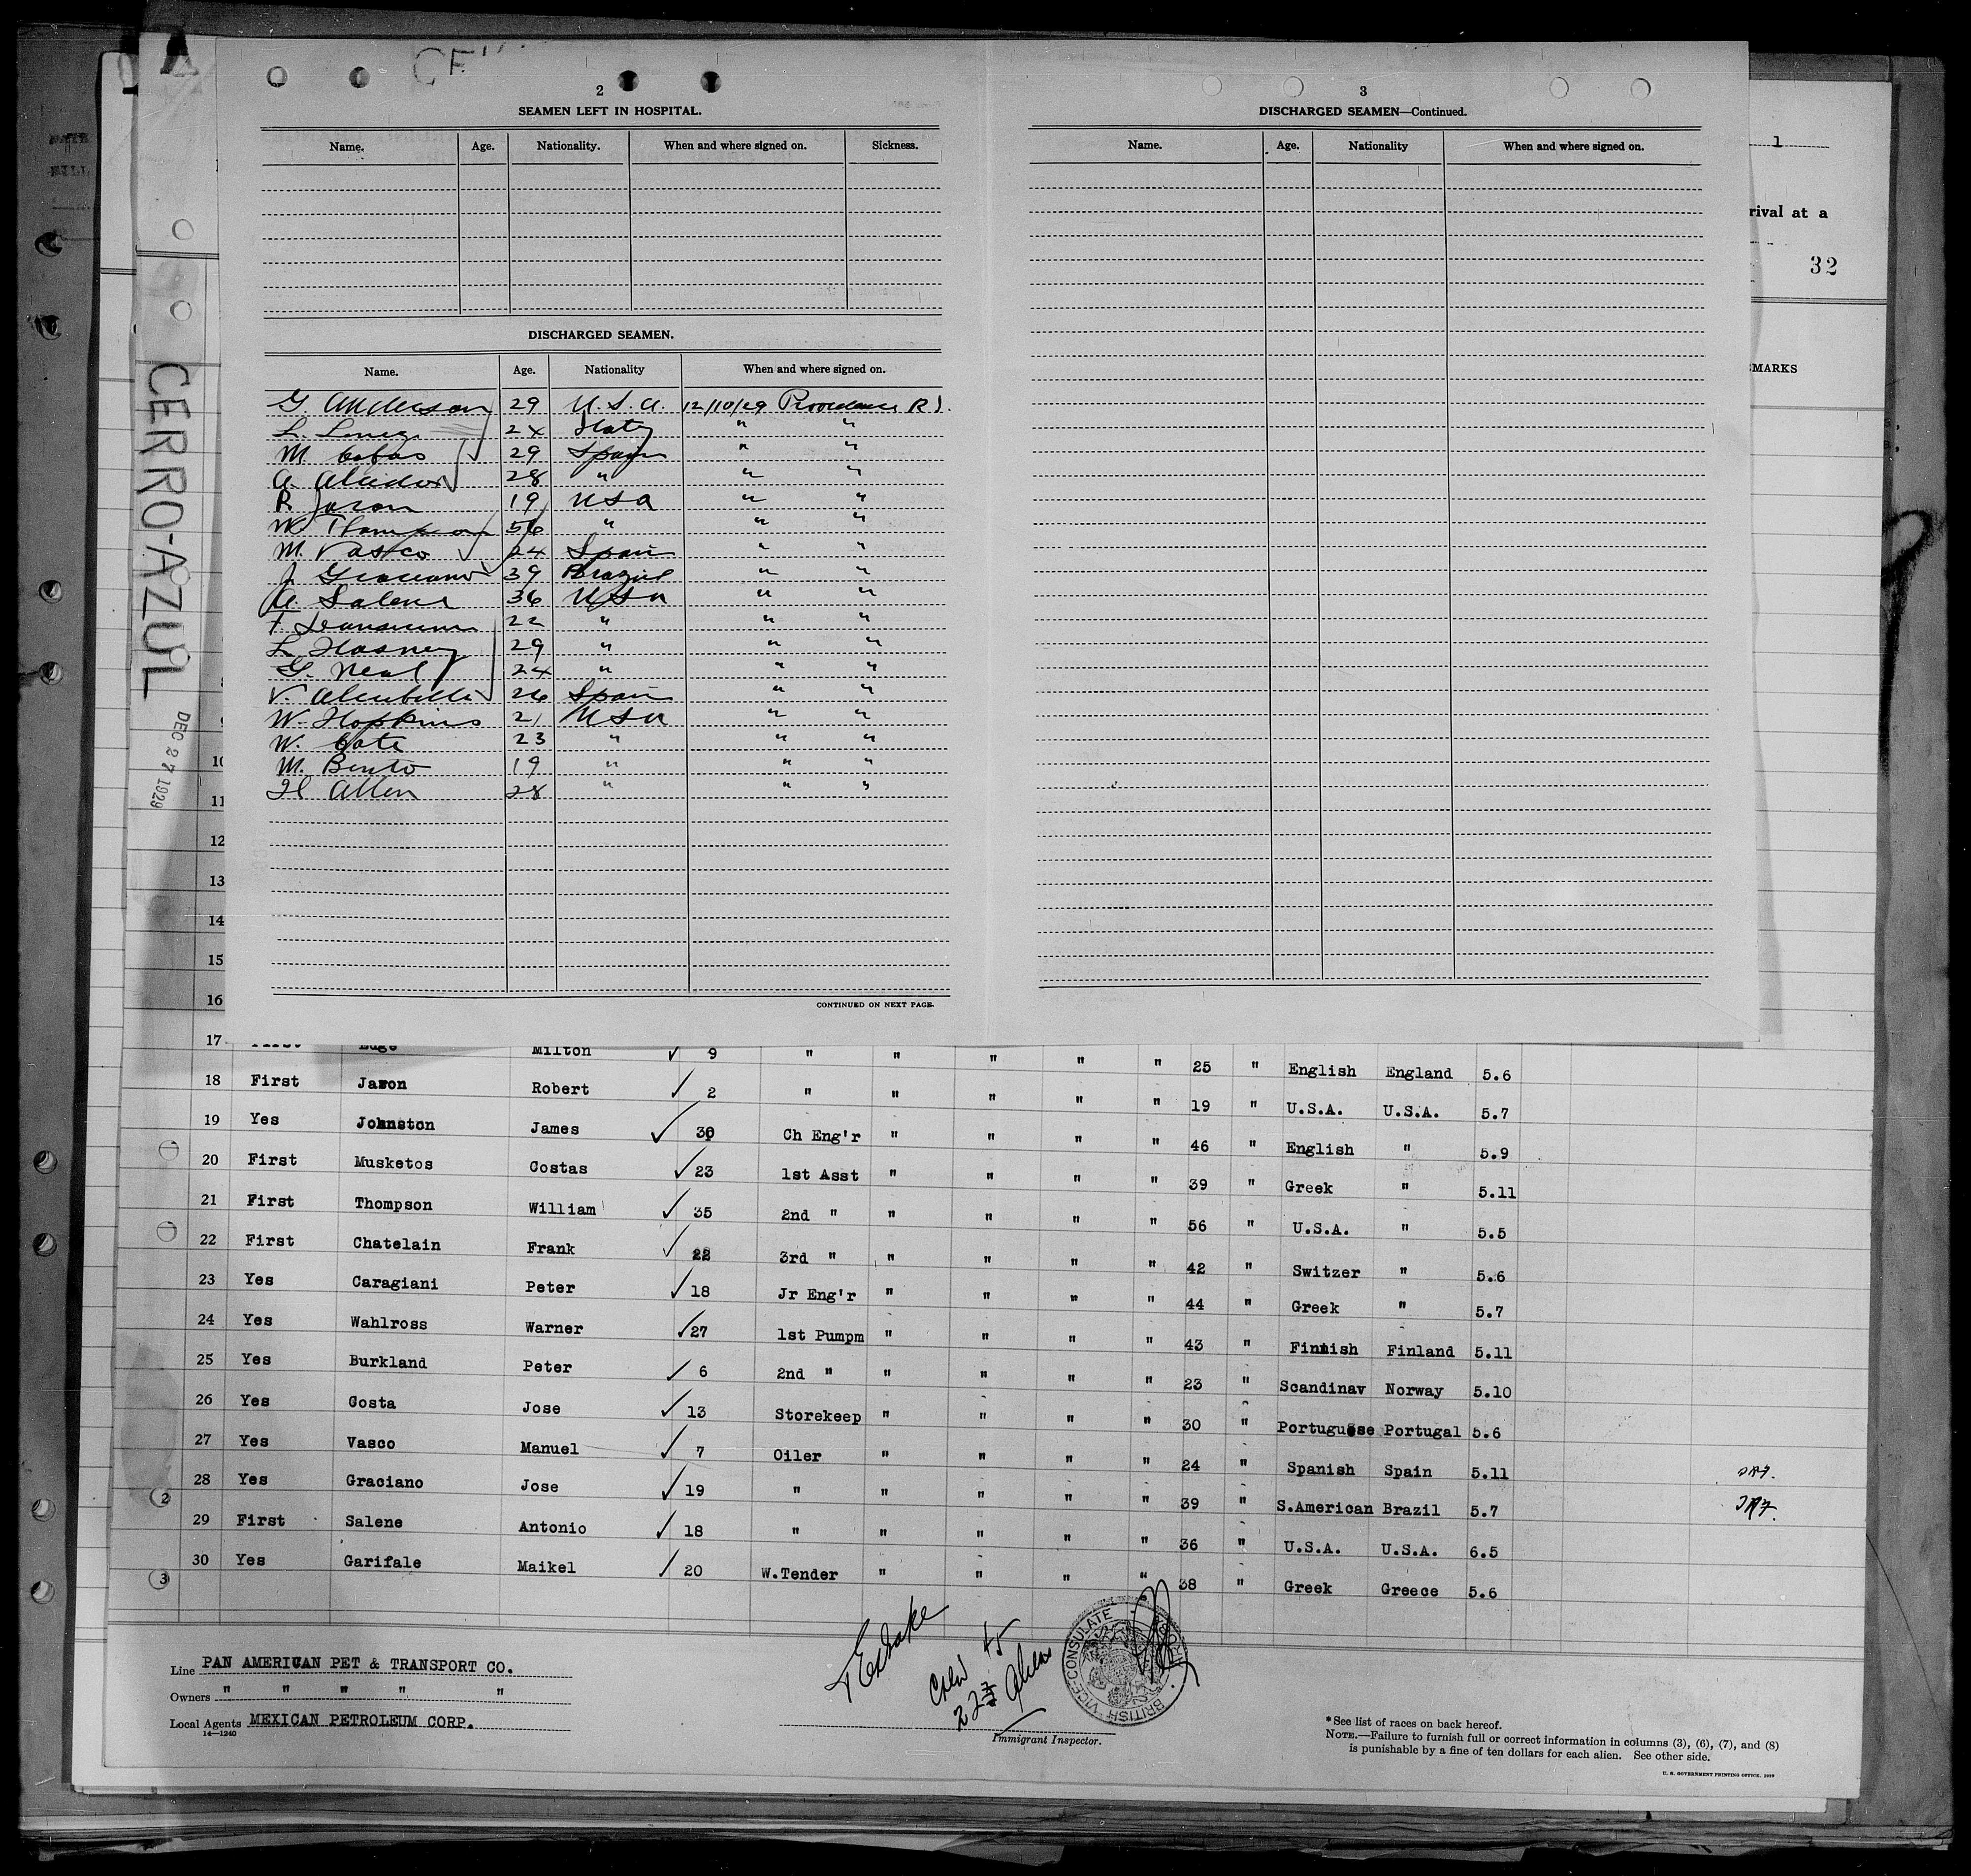 2
SEAMEN LEFT IN HOSPITAL.
Name. Age. Nationality. When and where signed on. Sickness.
DISCHARGED SEAMEN.
Name. Age. Nationality When and where signed on.
G. Anderson 29 U.S.A. 12/10/29 Providence R I.
L. 24 Italy " "
M. Cobas 29 Spain " "
A. 28 " " "
R Jaron 19 USA " "
W. Thompson 56 " " "
M. Vasco 24 Spain " "
J. Graciano 39 Brazil " "
A. Salene 36 USA " "
F. 22 " " "
L. Hasney 29 " " "
G. Neal 24 " " "
V. 26 Spain " "
W. Hopkins 21 USA " "
W. Cate 23 " " "
M. Bento 19 " " "
H Allen 28 " " "
CONTINUED ON NEXT PAGE.
3
DISCHARGED SEAMEN—Continued.
Name. Age. Nationality When and where signed on.
1
rival at a
32
EMARKS
CERRO-AZUL
DEC 27 1929
10
11
12
13
14
15
16
17 First Edge Milton ✓ 9 " " " " " 25 " English England 5.6
18 First Jaron Robert ✓ 2 " " " " " 19 " U.S.A. U.S.A. 5.7
19 Yes Johnston James ✓ 30 Ch Eng'r " " " " 46 " English " 5.9
20 First Musketos Costas ✓ 23 1st Asst " " " " 39 " Greek " 5.11
21 First Thompson William ✓ 35 2nd " " " " " 56 " U.S.A. " 5.5
22 First Chatelain Frank ✓ 22 3rd " " " " " 42 " Switzer " 5.6
23 Yes Caragiani Peter ✓ 18 Jr Eng'r " " " " 44 " Greek " 5.7
24 Yes Wahlross Warner ✓ 27 1st Pumpm " " " " 43 " Finnish Finland 5.11
25 Yes Burkland Peter ✓ 6 2nd " " " " " 23 " Scandinav Norway 5.10
26 Yes Costa Jose ✓ 13 Storekeep " " " " 30 " Portuguese Portugal 5.6
27 Yes Vasco Manuel ✓ 7 Oiler " " " " 24 " Spanish Spain 5.11
28 Yes Graciano Jose ✓ 19 " " " " " 39 " S.American Brazil 5.7
29 First Salene Antonio ✓ 18 " " " " " 36 " U.S.A. U.S.A. 6.5
30 Yes Garifale Maikel ✓ 20 W.Tender " " " " 38 " Greek Greece 5.6
2
3
Line PAN AMERICAN PET & TRANSPORT CO.
Owners " " " " "
Local Agents MEXICAN PETROLEUM CORP.
14—1240
Crew 45
Aliens
BRITISH VICE-CONSULATE
Immigrant Inspector.
*See list of races on back hereof.
NOTE.—Failure to furnish full or correct information in columns (3), (6), (7), and (8)
is punishable by a fine of ten dollars for each alien. See other side.
U. S. GOVERNMENT PRINTING OFFICE. 1929